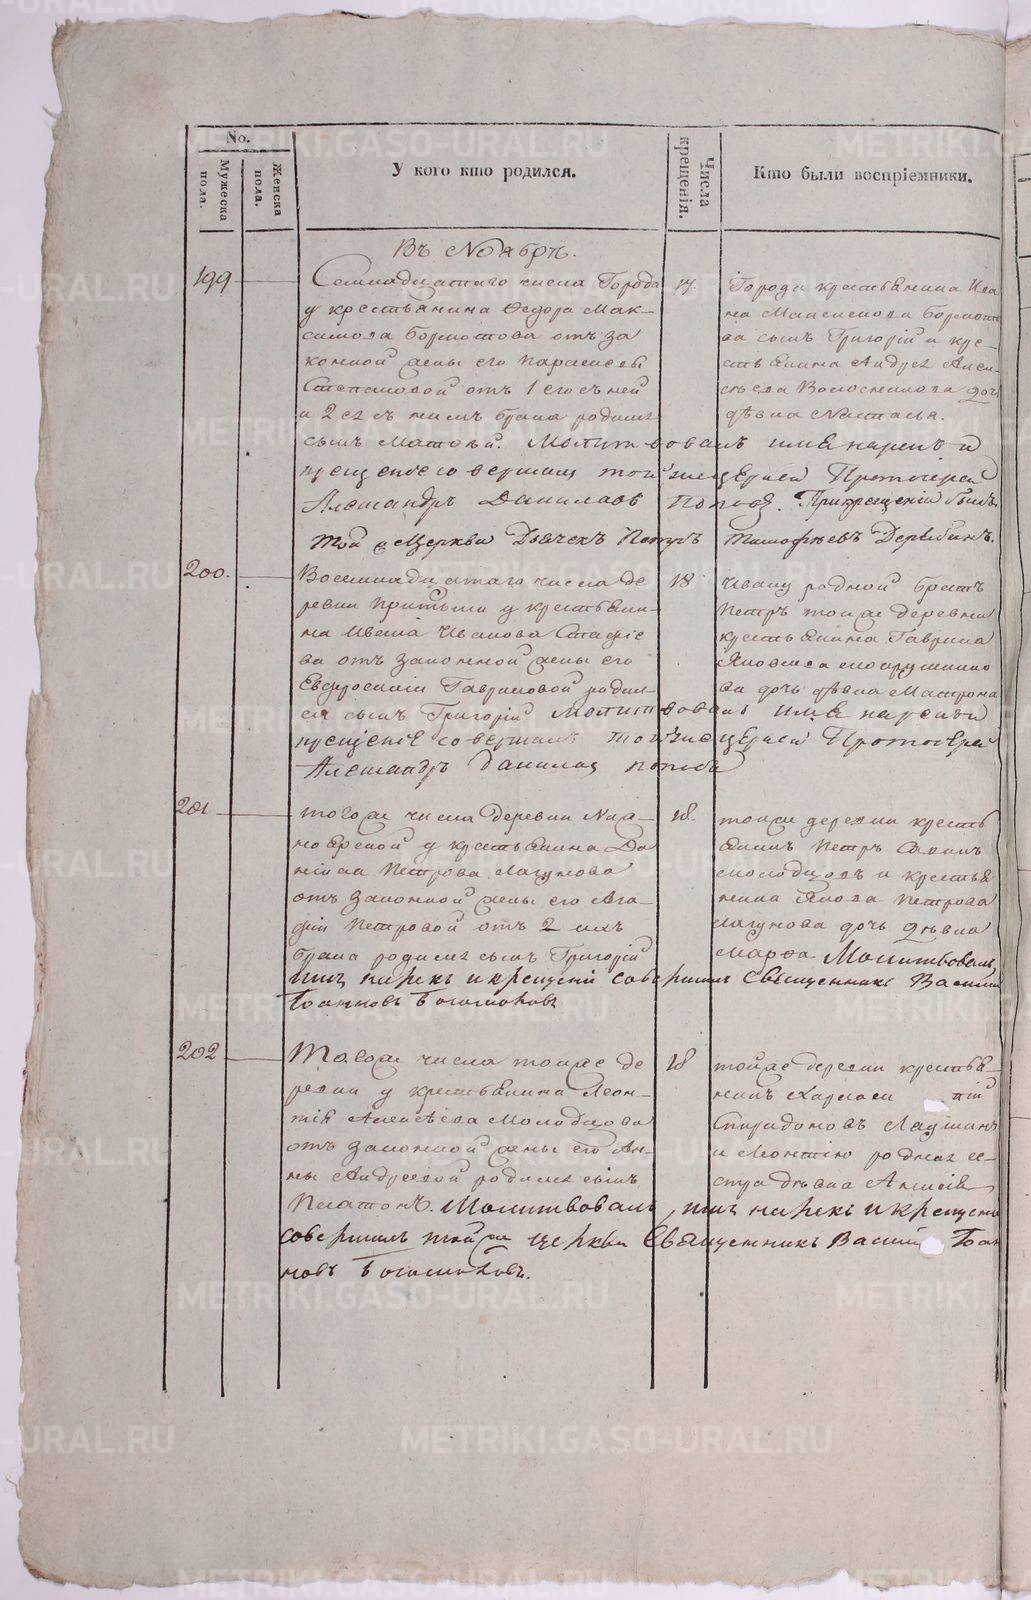 No.
Мужеска пола.
Женска пола.
У кого кто родился.
Числа крещенія.
Кто были воспріемники.
Въ Ноябрѣ.
199
Семнадцатаго числа Города
у крестьянина Ѳедора Мак-
симова Бормотова отъ за
конной жены его Парасковьи
Степановой отъ 1 его съ ней
брака родился
сынъ Матѳей. Молитвовалъ имя нарекъ и
крещеніе совершилъ той же церкви Протоіерей
Александръ Даниловъ Поповъ. При крещеніи былъ
той Церкви Дьячекъ Петръ Тимофѣевъ Дерябинъ.
17.
Города крестьянина Ива
на Максимова Бормото
ва сынъ Григорій и кре-
стьянина Андрея Алек-
сѣева дочь
дѣвка Настасья.
200.
Восемнадцатаго числа де
ревни у крестьяни-
на Ивана Иванова
ва отъ законной жены его
Евфросиніи Гавриловой родил-
ся сынъ Григорій Молитвовалъ имя нарекъ и
крещеніе совершилъ той же церкви Протоіерей
Александръ Данилов Поповъ
18
Ивану родной братъ
Петръ той же деревни
крестьянина Гаврила
Яковлева
ва дочь дѣвка Матрона
201
того же числа деревни
у крестьянина Да
ніила Петрова Лагунова
отъ законной жены его Ага-
фіи Петровой отъ 2 ихъ
брака родился сынъ Григорій
имя нарекъ и крещеніе совершилъ Священникъ Василій
Іоанновъ
18.
той же деревни кресть
янинъ Петръ Саввинъ
Молодцовъ и крестья
нина Якова Петрова
Лагунова дочь дѣвка
Марѳа Молитвовалъ
202
Того же числа той же де
ревни у крестьянина Леон-
тія Алексѣева Молодцова
отъ законной жены его Ан-
ны Андреевой родился сынъ
Платонъ. Молитвовалъ, имя нарекъ и крещеніе
совершилъ той же церкви Священникъ Василій Іоан
новъ
18
той же деревни крестья-
нинъ
Спиридоновъ
и Леонтію родная се-
стра дѣвка Анисія
METRIKI.GASO-URAL.RU